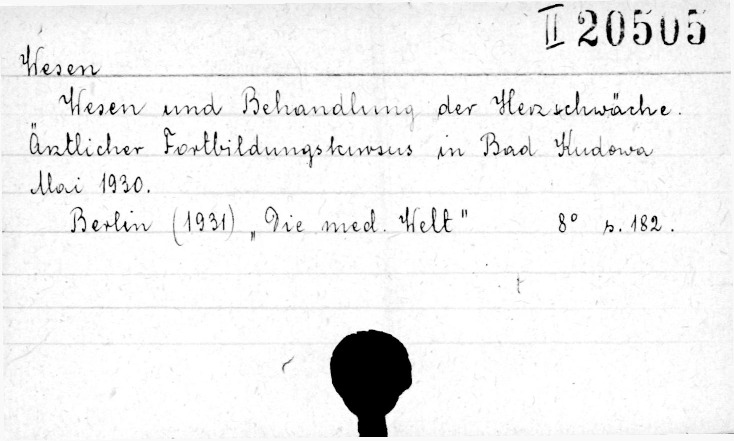 II 20505
Wesen
Wesen und Behandlung der Herzschwäche.
Ärztlicher Fortbildungskursus in Bad Kudowa
Mai 1930.
Berlin (1931) „Die med. Welt" 8° s. 182.